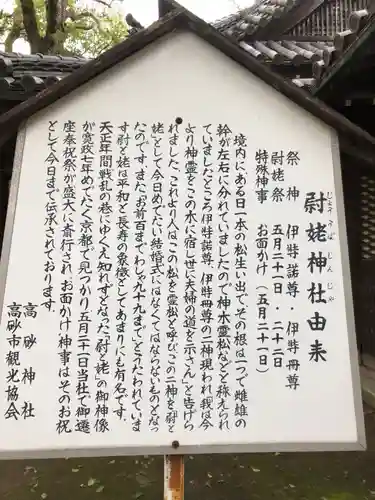 尉姥神社由来
じょうとうば じんじゃ
祭神　伊弉諾尊・伊弉冊尊
尉姥祭　五月二十一日・二十二日
特殊神事　お面かけ（五月二十一日）
境内にある日一本の松生い出で、その根は一つで雌雄の
幹が左右に分れていましたので神木霊松などと称えられ
ていましたところ伊弉諾尊、伊弉冊尊の二神現われ「我は今
より神霊をこの木に宿し世に夫婦の道を示さん」と告げら
れました。これより人はこの松を霊松と呼び、この二神を「尉と
姥」として今日めでたい結婚式にはなくてはならないものとなっ
たのです。また「お前百までわしゃ九十九まで」とうたわれていま
す尉と姥は平和と長寿の象徴としてあまりにも有名です。
天正年間戦乱の巷にゆくえ知れずとなった「尉と姥」の御神像
が寛政七年めでたく京都で見つかり五月二十一日当社でご遷
座奉祝祭が盛大に斎行され お面かけ神事はそのお祝
として今日まで伝承されております。
高砂神社
高砂市観光協会